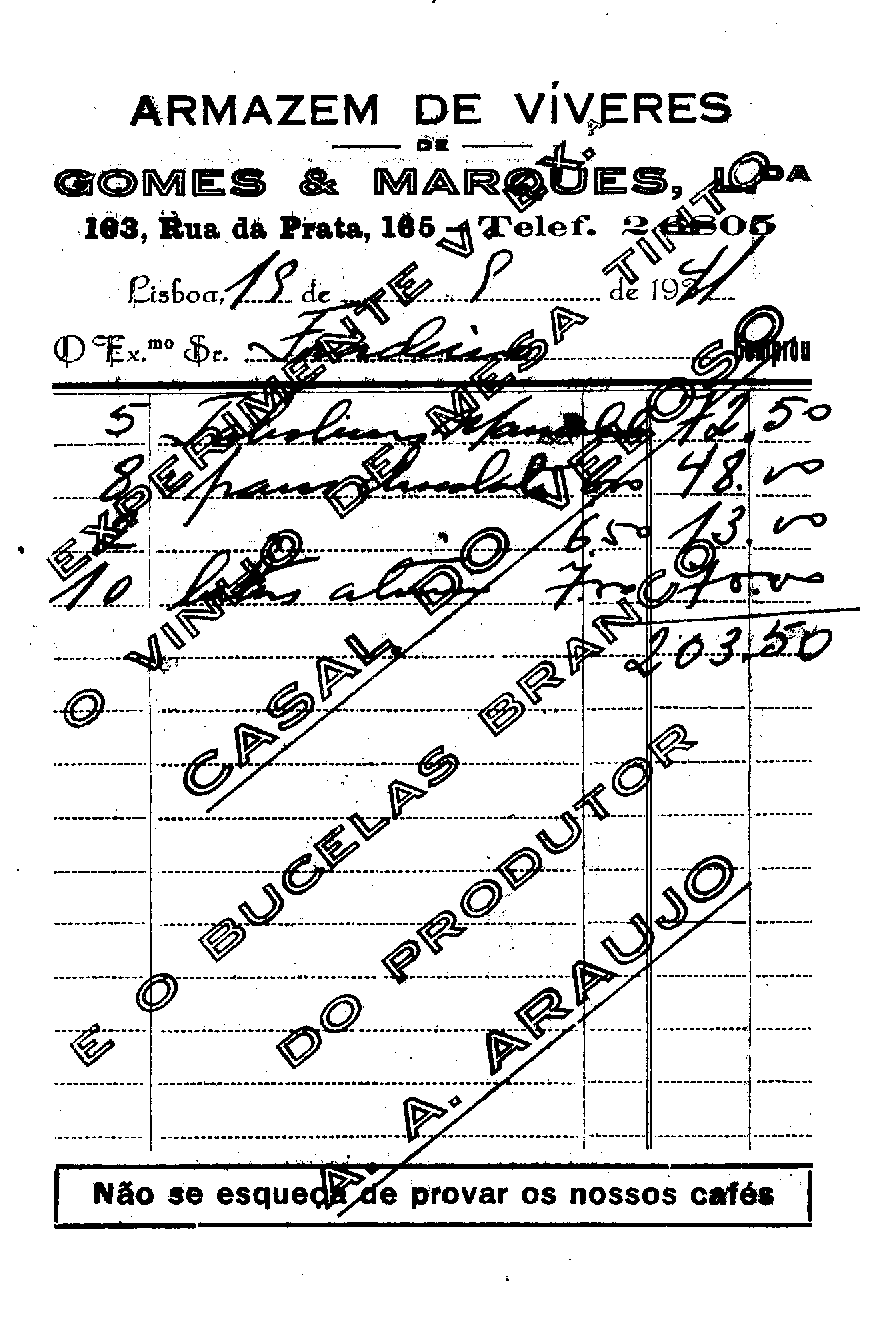 ARMAZEM DE VÍVERES
DE
GOMES & MARQUES, L.DA
163, Rua da Prata, 165 - Telef. 2 6805
Lisboa, 19 de 9 de 1941
O Ex.mo Sr. Comprou
5 72,50
8 48.00
2 6.50 13.00
10 latas 7.00 70.00
203,50
EXPERIMENTE V. EX.
O VINHO DE MESA TINTO
CASAL DO VELOSO
E O BUCELAS BRANCO
DO PRODUTOR
A. A. ARAUJO
Não se esqueça de provar os nossos cafés